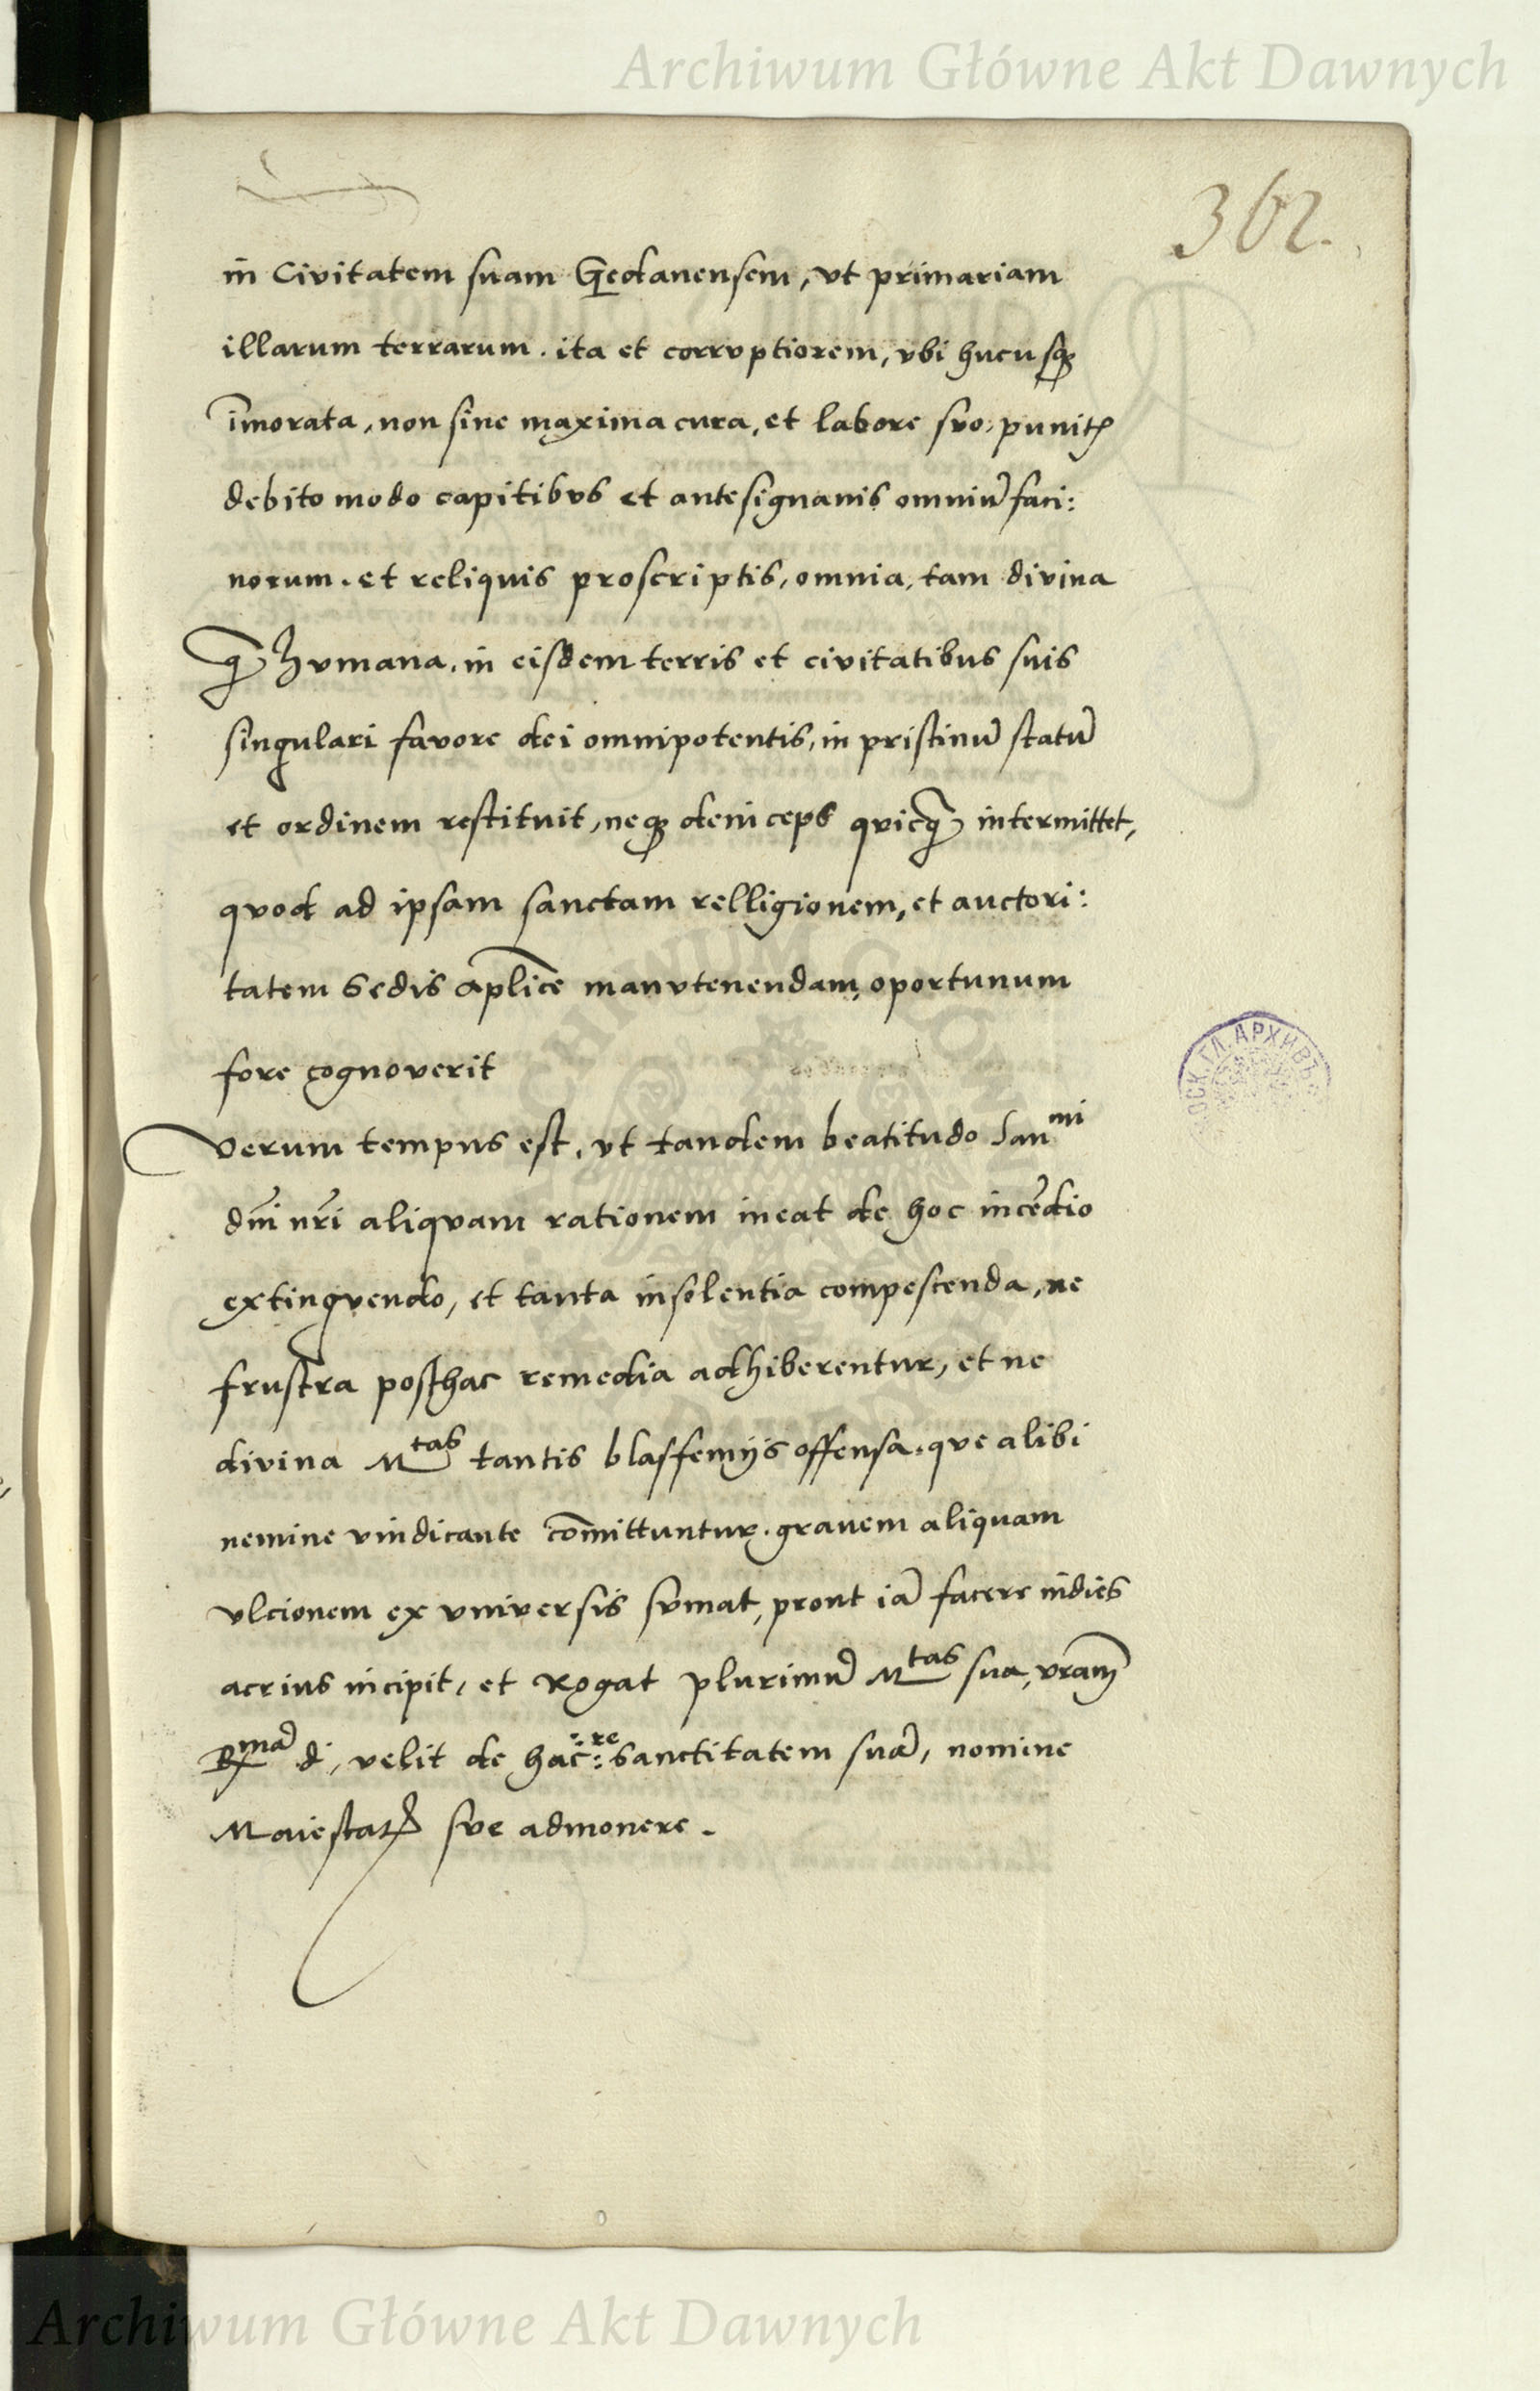 Archiwum Główne Akt Dawnych
362.
in Civitatem suam Gedanensem, vt primariam
illarum terrarum . ita et corrvptiorem, vbi hucusqꝫ
im̄orata, non sine maxima cvra, et labore svo, punitꝭ
debito modo capitibvs et antesignanis omniū faci:
norum . et reliquis proscriptis, omnia, tam divina
q̄ hvmana, in eisdem terris et civitatibus suis
singulari favore dei omnipotentis, in pristinū statū
et ordinem restituit, neqꝫ deinceps qvicq̄ intermittet,
qvod ad ipsam sanctam relligionem, et auctori:
tatem sedis ap̄lice manvtenendam, oportunum
fore cognoverit
Verum tempus est, vt tandem beatitudo San^mi
dn̄i nr̄i aliqvam rationem ineat de hoc incēdio
extingvendo, et tanta insolentia compescenda, ne
frustra posthac remedia adhiberentur, et ne
divina M^tas tantis blasfemijs offensa, qve alibi
nemine vindicante com̄ittuntur, grauem aliquam
vlcionem ex vniversis svmat, prout iā facere indies
acrius incipit, et Rogat plurimū M^tas sua, vrām
R^mā d., velit de hac : re : sanctitatem suā, nomine
Maiestatꝭ sve admonere .
ОСК. ГЛ. АРХИВЪ
Archiwum Główne Akt Dawnych